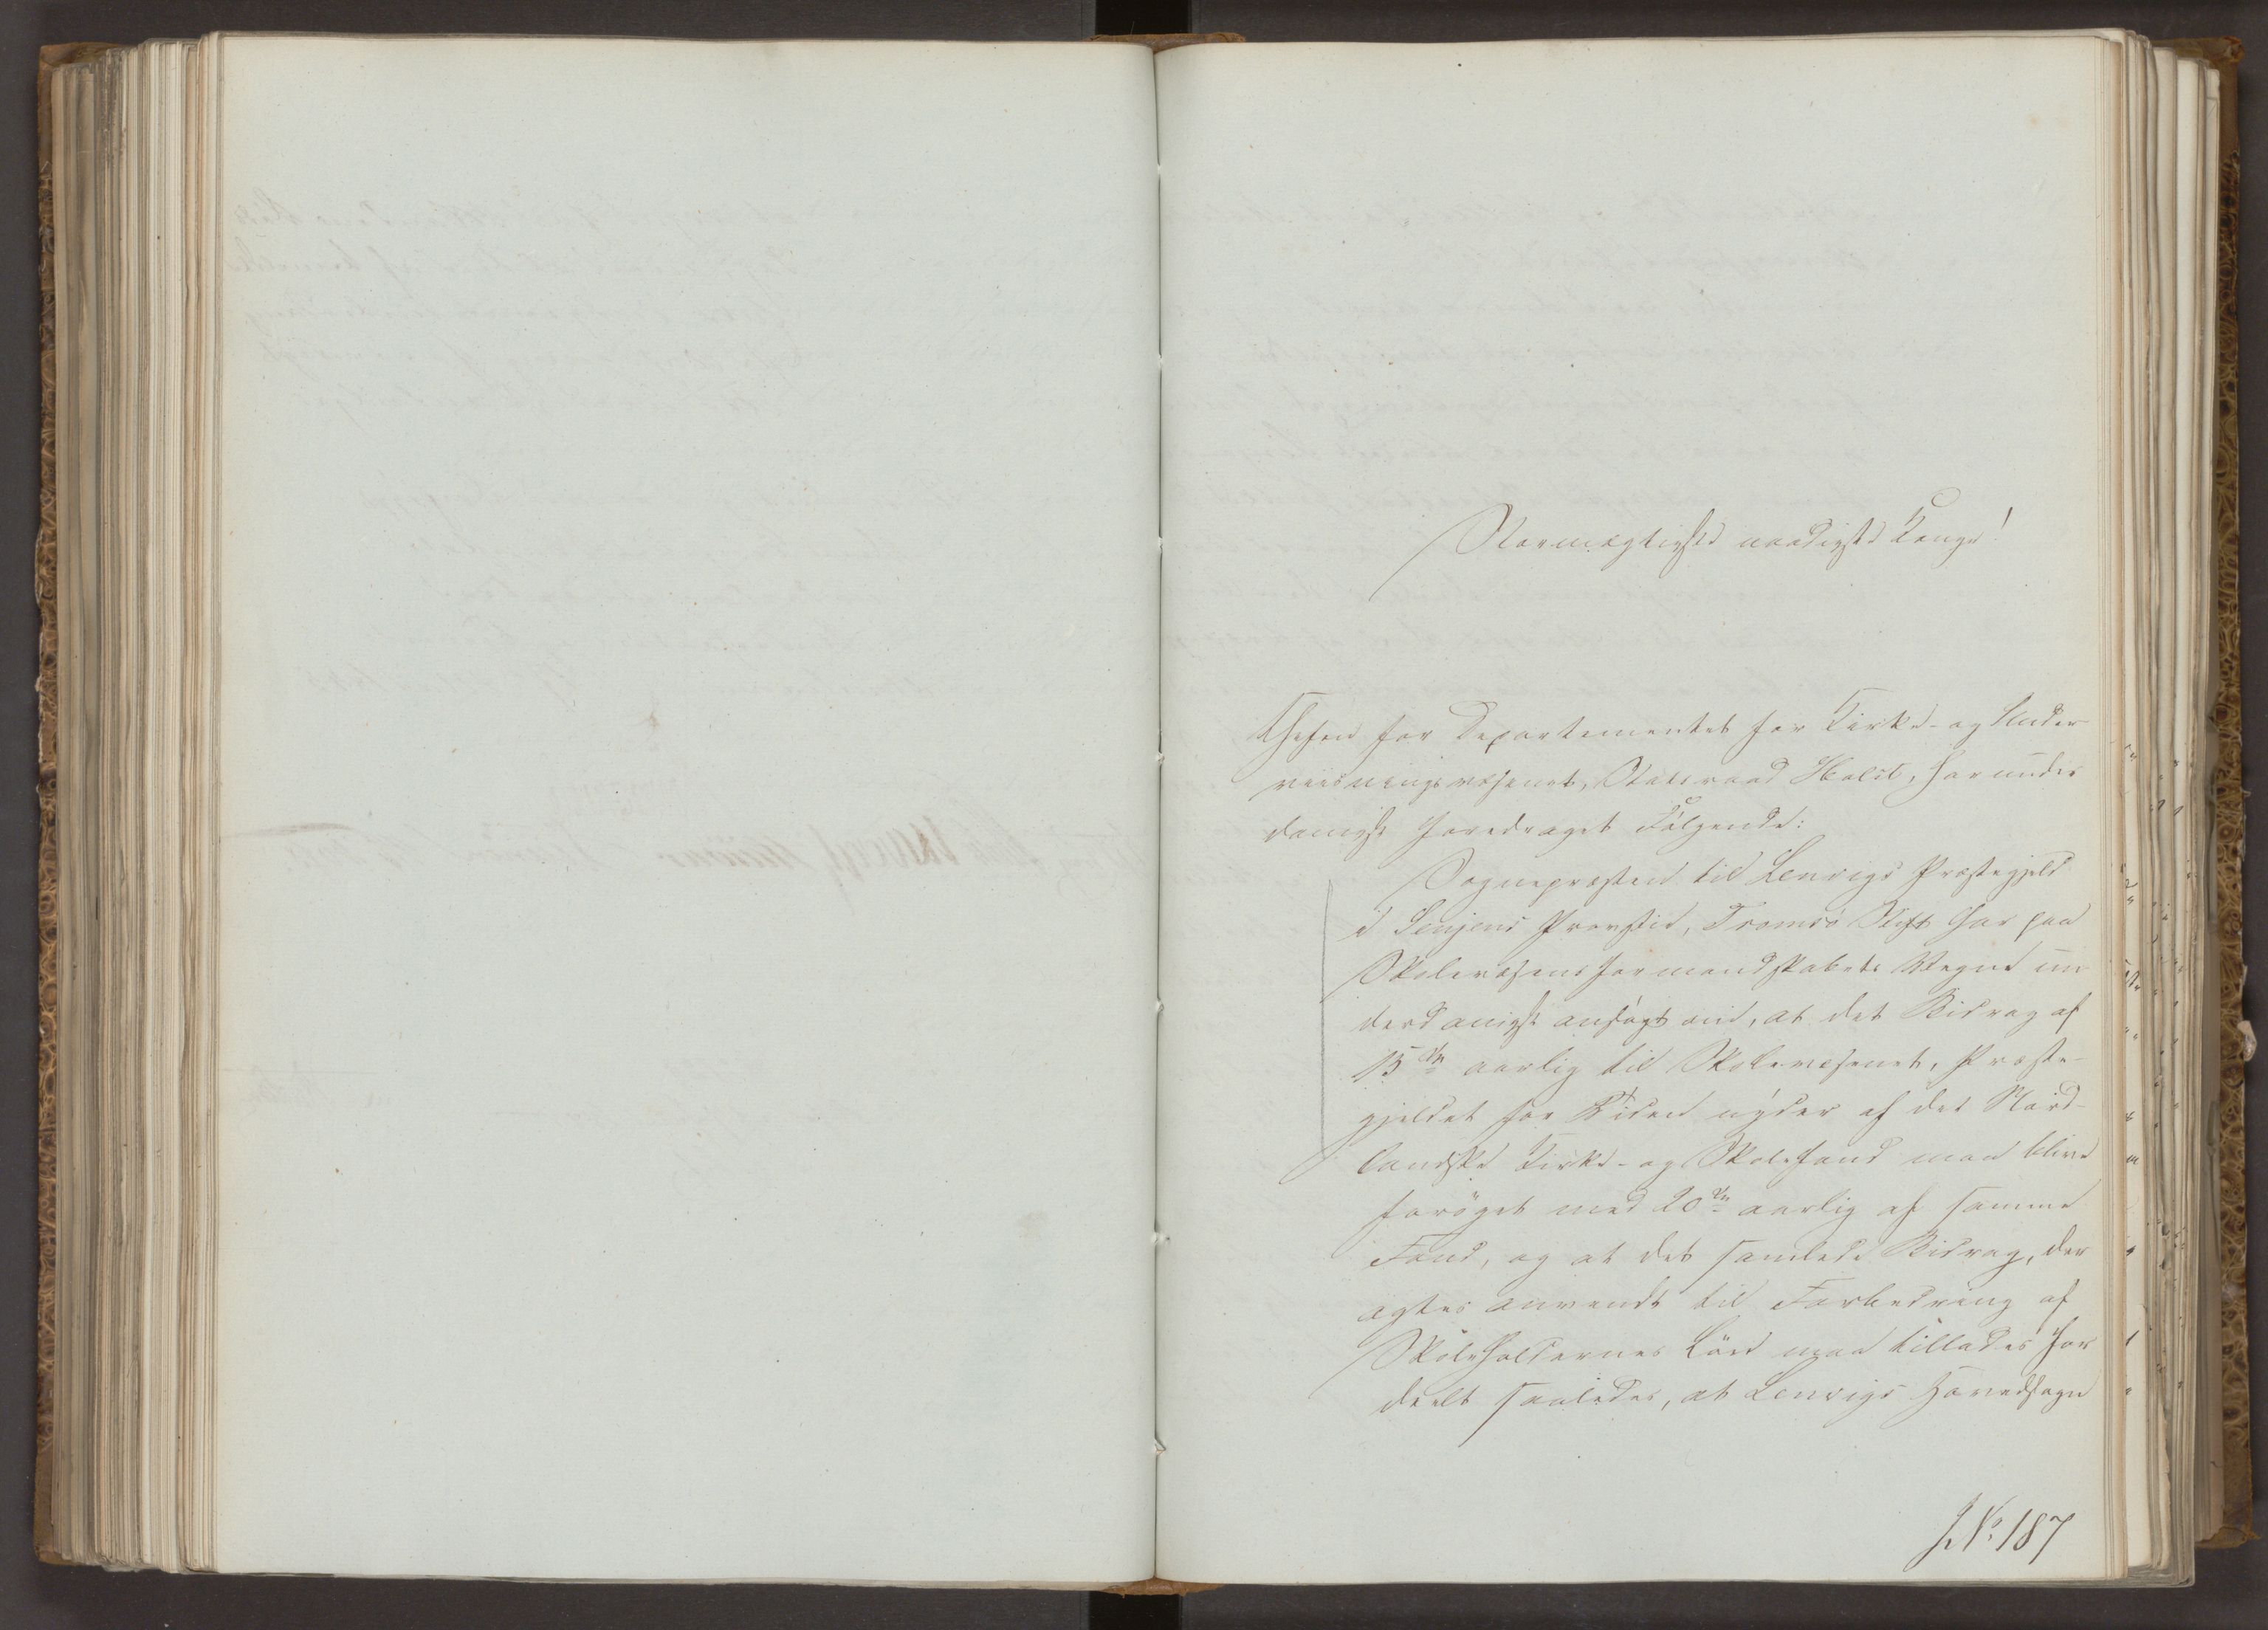 Stormægtigste naadigste Konge!
Chefen for Departementet for Kirke- og Under
viisningsvæsenet, Statsraad Holst, har under
danigst foredraget Følgende:
Sognepræsten til Lenvigs Præstegjeld
i Senjens Provstie, Tromsø Stift har paa
Skolevæsens Formandskabets Vegne un
derdanigst ansøgt om, at det Bidrag af
aarlig til Skolevæsenet, Præste-
gjeldet for Tiden nyder af det Nord-
landske Kirke- og Skolefond maa blive
forøget med 20 aarlig af samme
Fond, og at det samlede Bidrag, der
agtes anvendt til Forbedring af
Skoleholdernes Løn maa tillades for
deelt saaledes, at Lenvigs Hovedsogn
J. N. 187